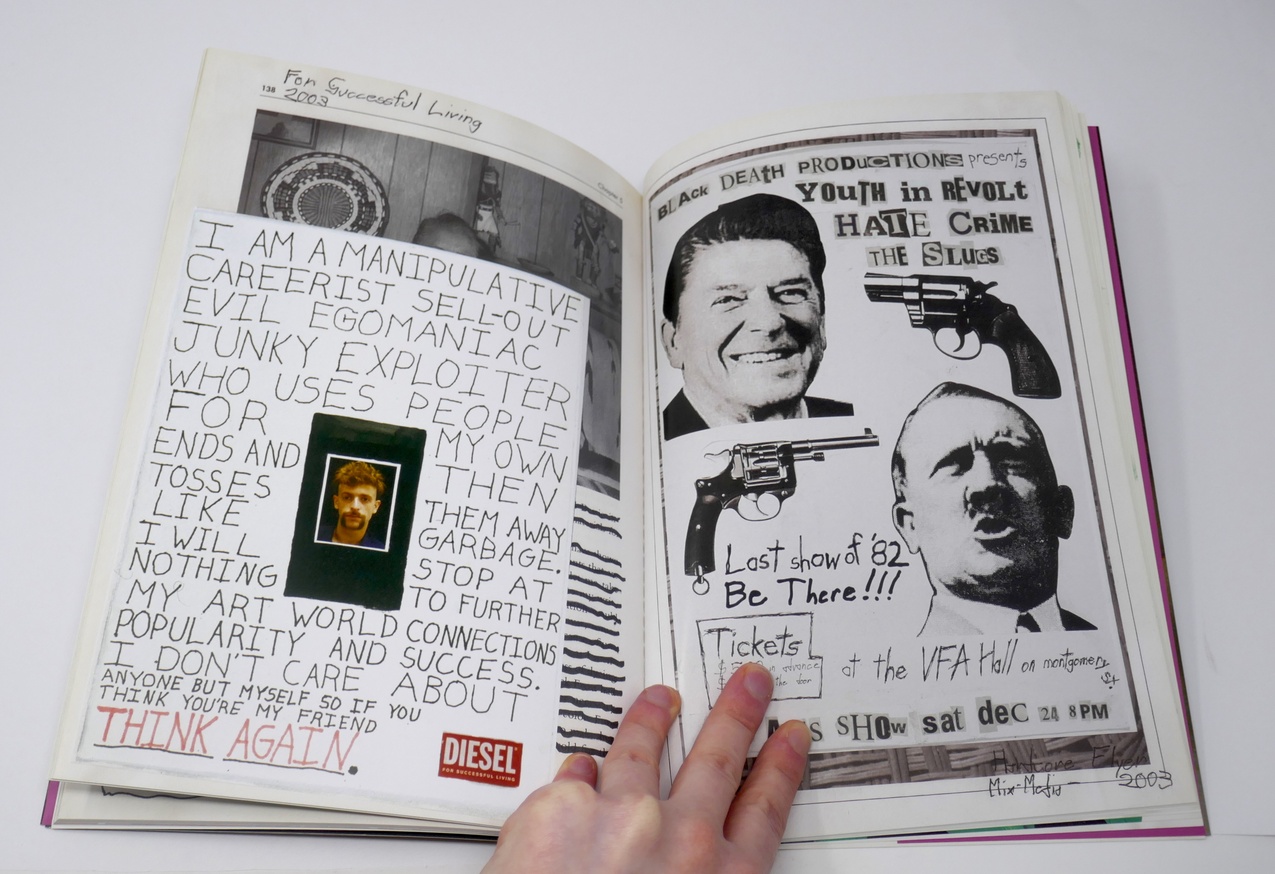 138
For Successful Living
2003
Chapter 5
I AM A MANIPULATIVE
CAREERIST SELL-OUT
EVIL EGOMANIAC
JUNKY EXPLOITER
WHO USES PEOPLE
FOR MY OWN
ENDS AND THEN
TOSSES THEM AWAY
LIKE GARBAGE.
I WILL STOP AT
NOTHING TO FURTHER
MY ART WORLD CONNECTIONS
POPULARITY AND SUCCESS.
I DON'T CARE ABOUT
ANYONE BUT MYSELF SO IF YOU
THINK YOU'RE MY FRIEND
THINK AGAIN.
DIESEL
FOR SUCCESSFUL LIVING
BLAck DEATH PRODUcTIONS presents
YOUTH in REVOLt
HATE CRiME
THE SLUGS
Last show of '82
Be There!!!
Tickets
in advance
the door
at the VFA Hall on montgomery St
SHOw sat dec 24 8PM
Hardcore Flyer
Mix-Mafia
2003